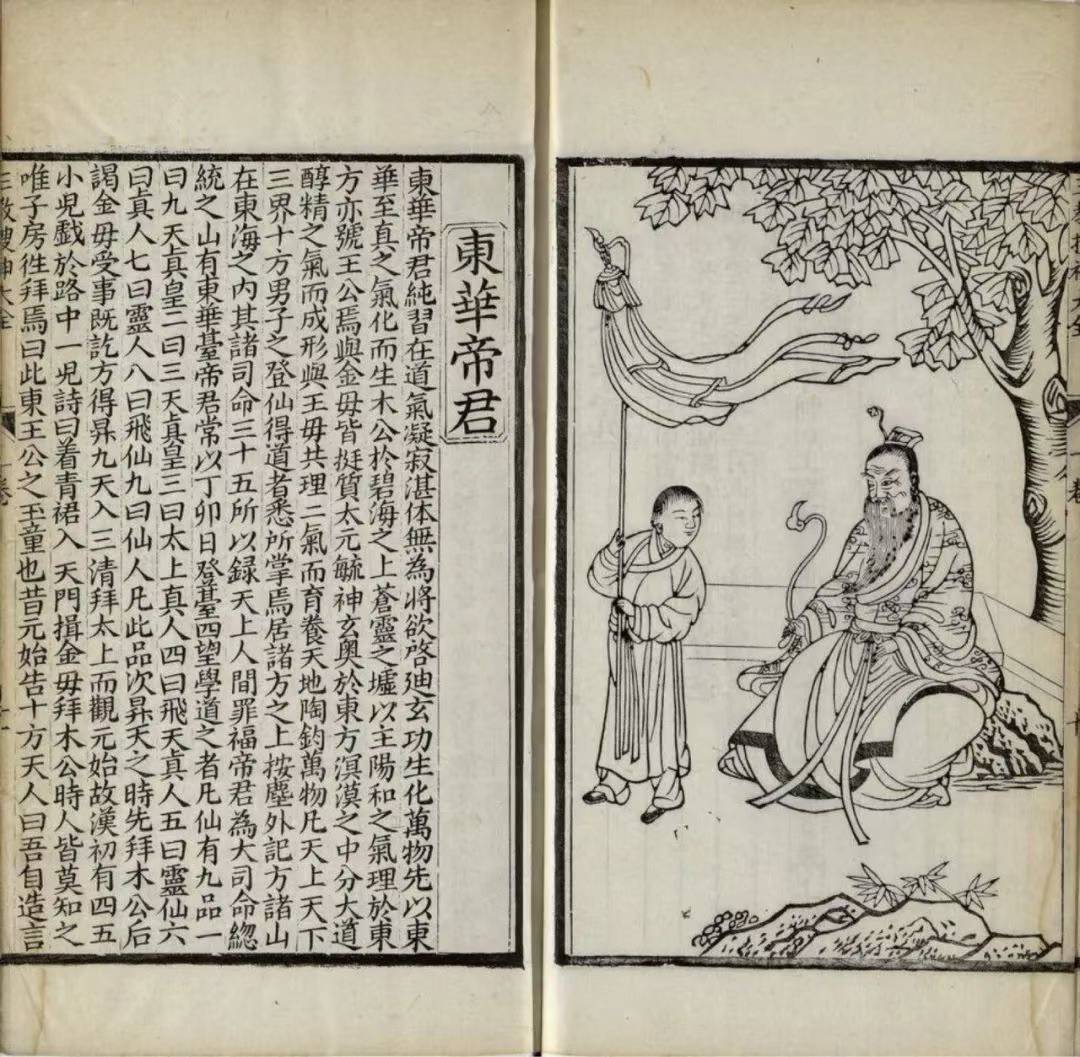 東華帝君
東華帝君純習在道氣凝寂湛体無為將欲啓迪玄功生化萬物先以東
華至真之氣化而生木公於碧海之上蒼靈之墟以主陽和之氣理於東
方亦號王公焉與金毋皆挺質太元毓神玄奧於東方溟漠之中分大道
醇精之氣而成形與王毋共理二氣而育養天地陶鈞萬物凡天上天下
三界十方男子之登仙得道者悉所掌焉居諸方之上按塵外記方諸山
在東海之内其諸司命三十五所以録天上人間罪福帝君為大司命緫
統之山有東華臺帝君常以丁卯日登臺四望學道之者凡仙有九品一
曰九天真皇二曰三天真皇三曰太上真人四曰飛天真人五曰靈仙六
曰真人七曰靈人八曰飛仙九曰仙人凡此品次昇天之時先拜木公后
謁金毋受事既訖方得昇九天入三清拜太上而觀元始故漢初有四五
小兒戯於路中一兒詩曰着青裙入天門揖金毋拜木公時人皆莫知之
唯子房徃拜焉曰此東王公之玉童也昔元始告十方天人曰吾自造言
三教搜神大全